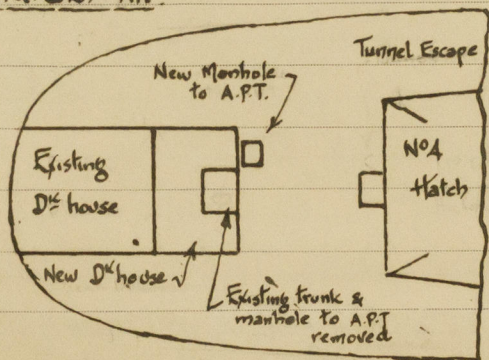 Tunnel Escape
New Manhole
to A.P.T.
Existing
Dk house
No4
Hatch
New Dk house
Existing trunk &
manhole to A.P.T
removed